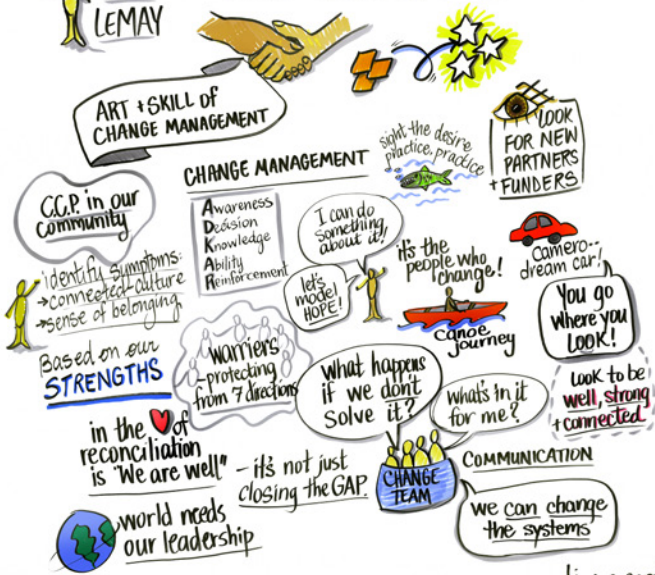 LEMAY
ART + SKILL of
CHANGE MANAGEMENT
CHANGE MANAGEMENT
Awareness
Decision
Knowledge
Ability
Reinforcement
sight the desire
practice, practice
LOOK
FOR NEW
PARTNERS
+ FUNDERS
C.C.P. in our
community
identify symptoms:
→ connected culture
→ sense of belonging
Based on our
STRENGTHS
I can do
something
about it!
let's
model
HOPE!
it's the
people who
change!
canoe
journey
Camero--
dream car!
You go
where you
LOOK!
Look to be
well, strong
+ connected
warriers
- protecting
from 7 directions
what happens
if we don't
solve it?
what's in it
for me?
in the of
reconciliation
is "We are well"
- it's not just
closing the GAP.
CHANGE
TEAM
COMMUNICATION
we can change
the systems
world needs
our leadership